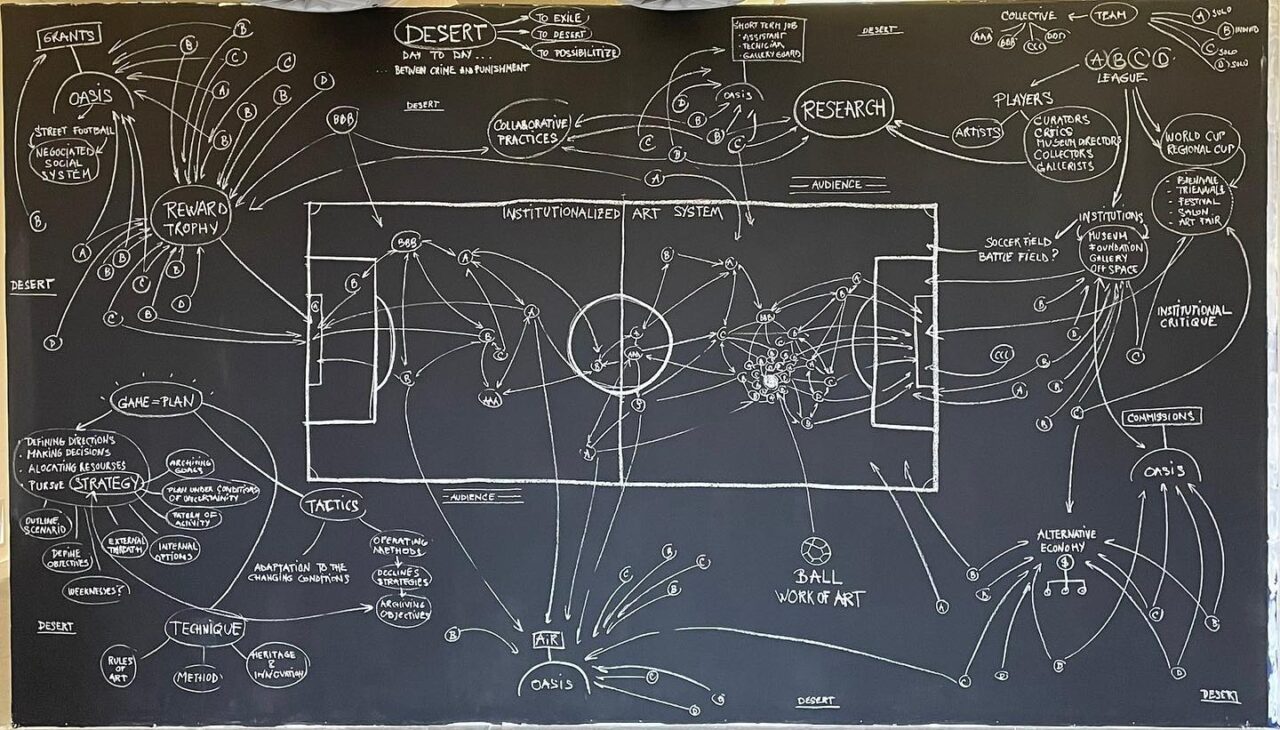 GRANTS
OASIS
STREET FOOTBALL
NEGOCIATED
SOCIAL
SYSTEM
DESERT
DAY TO DAY...
...BETWEEN CRIME AND PUNISHMENT
TO EXILE
TO DESERT
TO POSSIBILITIZE
DESERT
BBB
COLLABORATIVE
PRACTICES
SHORT TERM JOB
- ASSISTANT
- TECNICIAN
- GALLERY BOARD
OASIS
DESERT
RESEARCH
COLLECTIVE
TEAM
AAA
BBB
CCC
DDD
A SOLO
B
C SOLO
D SOLO
A B C D
LEAGUE
PLAYERS
ARTISTS
CURATORS
CRITICS
MUSEUM DIRECTORS
COLLECTORS
GALLERISTS
WORLD CUP
REGIONAL CUP
- BIENNALE
- TRIENNALE
- FESTIVAL
- SALON
- ART FAIR
REWARD
TROPHY
AUDIENCE
INSTITUTIONALIZED ART SYSTEM
INSTITUTIONS
MUSEUM
FOUNDATION
GALLERY
OFF SPACE
SOCCER FIELD
BATTLE FIELD?
INSTITUTIONAL
CRITIQUE
DESERT
BBB
BBB
AAA
AAA
CCC
GAME=PLAN
- DEFINING DIRECTIONS
- MAKING DECISIONS
- ALOCATING RESOURSES
- PURSUE STRATEGY
ARCHIVING
GOALS
PLAN UNDER CONDITIONS
OF UNCERTAINITY
PATERN OF
ACTIVITY
OUTLINE
SCENARIO
DEFINE
OBJECTIVES
EXTERNAL
THREATH
INTERNAL
OPTIONS
WEEKNESSES?
TACTICS
ADAPTATION TO THE
CHANGING CONDITIONS
OPERATING
METHODS
DECLINES
STRATEGIES
ARCHIVING
OBJECTIVES
AUDIENCE
COMMISSIONS
OASIS
ALTERNATIVE
ECONOMY
$
BALL
WORK OF ART
DESERT
TECHNIQUE
RULES
OF
ART
METHOD
HERITAGE
&
INNOVATION
AiR
OASIS
DESERT
DESERT